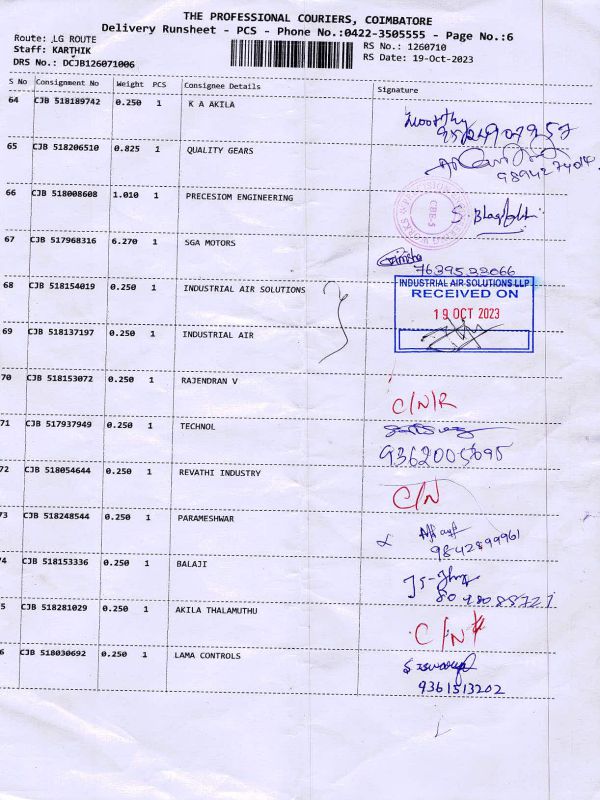 THE PROFESSIONAL COURIERS, COIMBATORE
Delivery Runsheet - PCS - Phone No.:0422-3505555 - Page No.:6
Route: LG ROUTE
Staff: KARTHIK
DRS No.: DCJB126071006
RS No.: 1260710
RS Date: 19-Oct-2023
S No Consignment No Weight PCS Consignee Details Signature
64 CJB 518189742 0.250 1 K A AKILA
65 CJB 518206510 0.825 1 QUALITY GEARS
9894274014
66 CJB 518008608 1.010 1 PRECESIOM ENGINEERING
CBE-5
67 CJB 517968316 6.270 1 SGA MOTORS
7639522066
68 CJB 518154019 0.250 1 INDUSTRIAL AIR SOLUTIONS
INDUSTRIAL AIR SOLUTIONS LLP
RECEIVED ON
19 OCT 2023
69 CJB 518137197 0.250 1 INDUSTRIAL AIR
70 CJB 518153072 0.250 1 RAJENDRAN V
C/N/R
71 CJB 517937949 0.250 1 TECHNOL
9362005695
72 CJB 518054644 0.250 1 REVATHI INDUSTRY
C/N
73 CJB 518248544 0.250 1 PARAMESHWAR
9842899961
74 CJB 518153336 0.250 1 BALAJI
5 CJB 518281029 0.250 1 AKILA THALAMUTHU
C/N
6 CJB 518030692 0.250 1 LAMA CONTROLS
9361513202